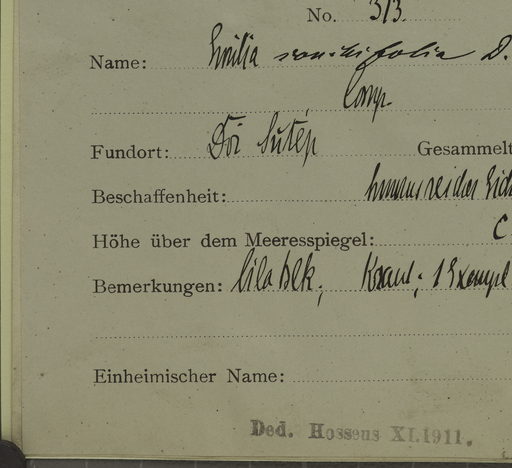 No. 313.
Name: Emilia sonchifolia D.
Comp.
Fundort: Doi Sutep Gesammelt
Beschaffenheit: humusreicher
Höhe über dem Meeresspiegel: C
Bemerkungen: lila Blk; Kraut; 1 Exempl
Einheimischer Name:
Ded. Hosseus XI.1911.